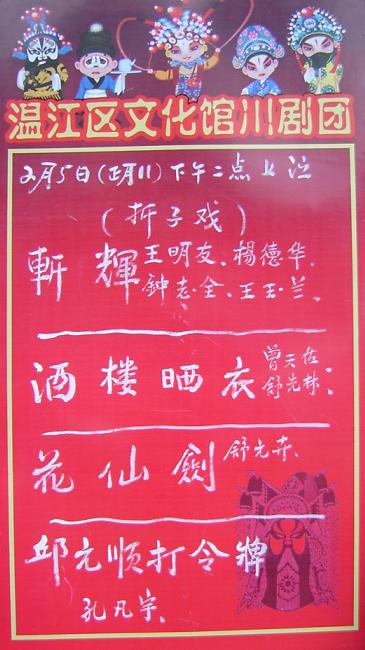 温江区文化馆川剧团
2月5日(正月11)下午二点上演
(折子戏)
斬 輝 王明友、楊德华、
鈡志全、王玉兰、
酒楼晒衣 曾天佐
舒光林、
花仙劍 舒光卉、
邱元顺打令牌
孔凡宇、